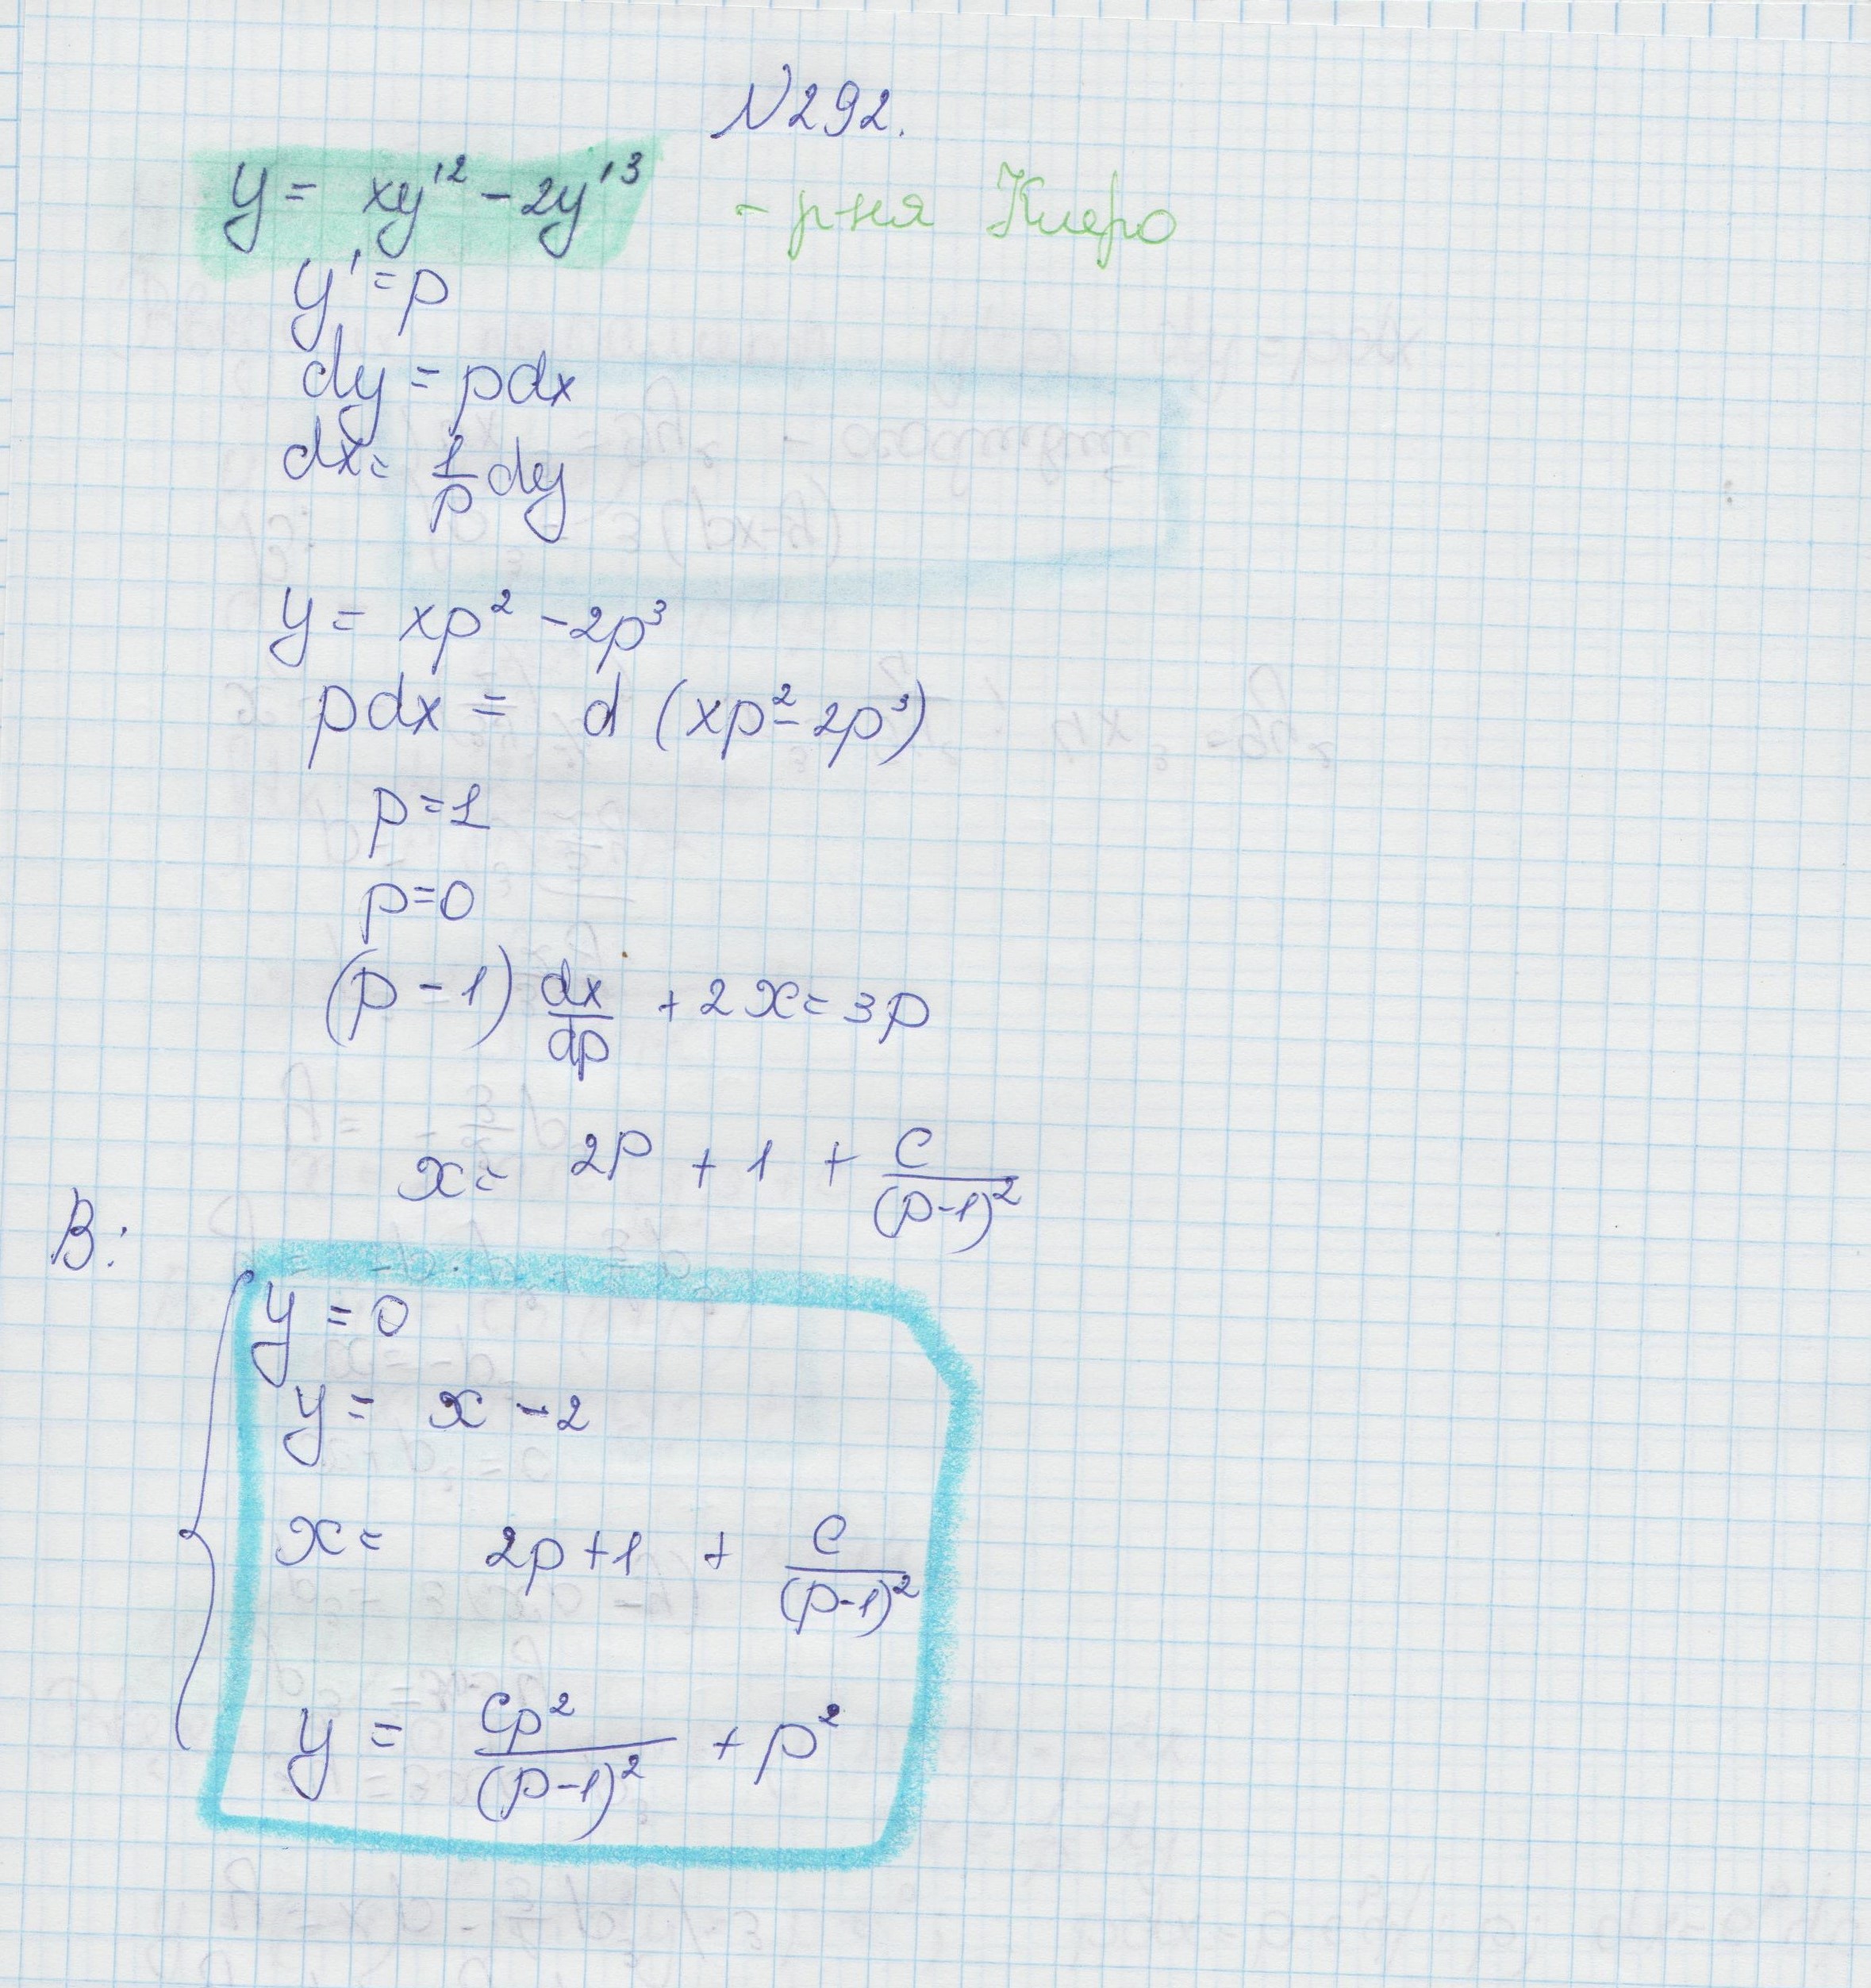 N292.
y = xy'² - 2y'³ - р-ня Клеро
y' = p
dy = pdx
dx = 1/p dy
y = xp² - 2p³
pdx = d (xp² - 2p³)
p=1
p=0
(p - 1) dx/dp + 2x = 3p
x = 2p + 1 + c/(p-1)²
В:
y = 0
y = x - 2
x = 2p+1 + c/(p-1)²
y = cp²/(p-1)² + p²